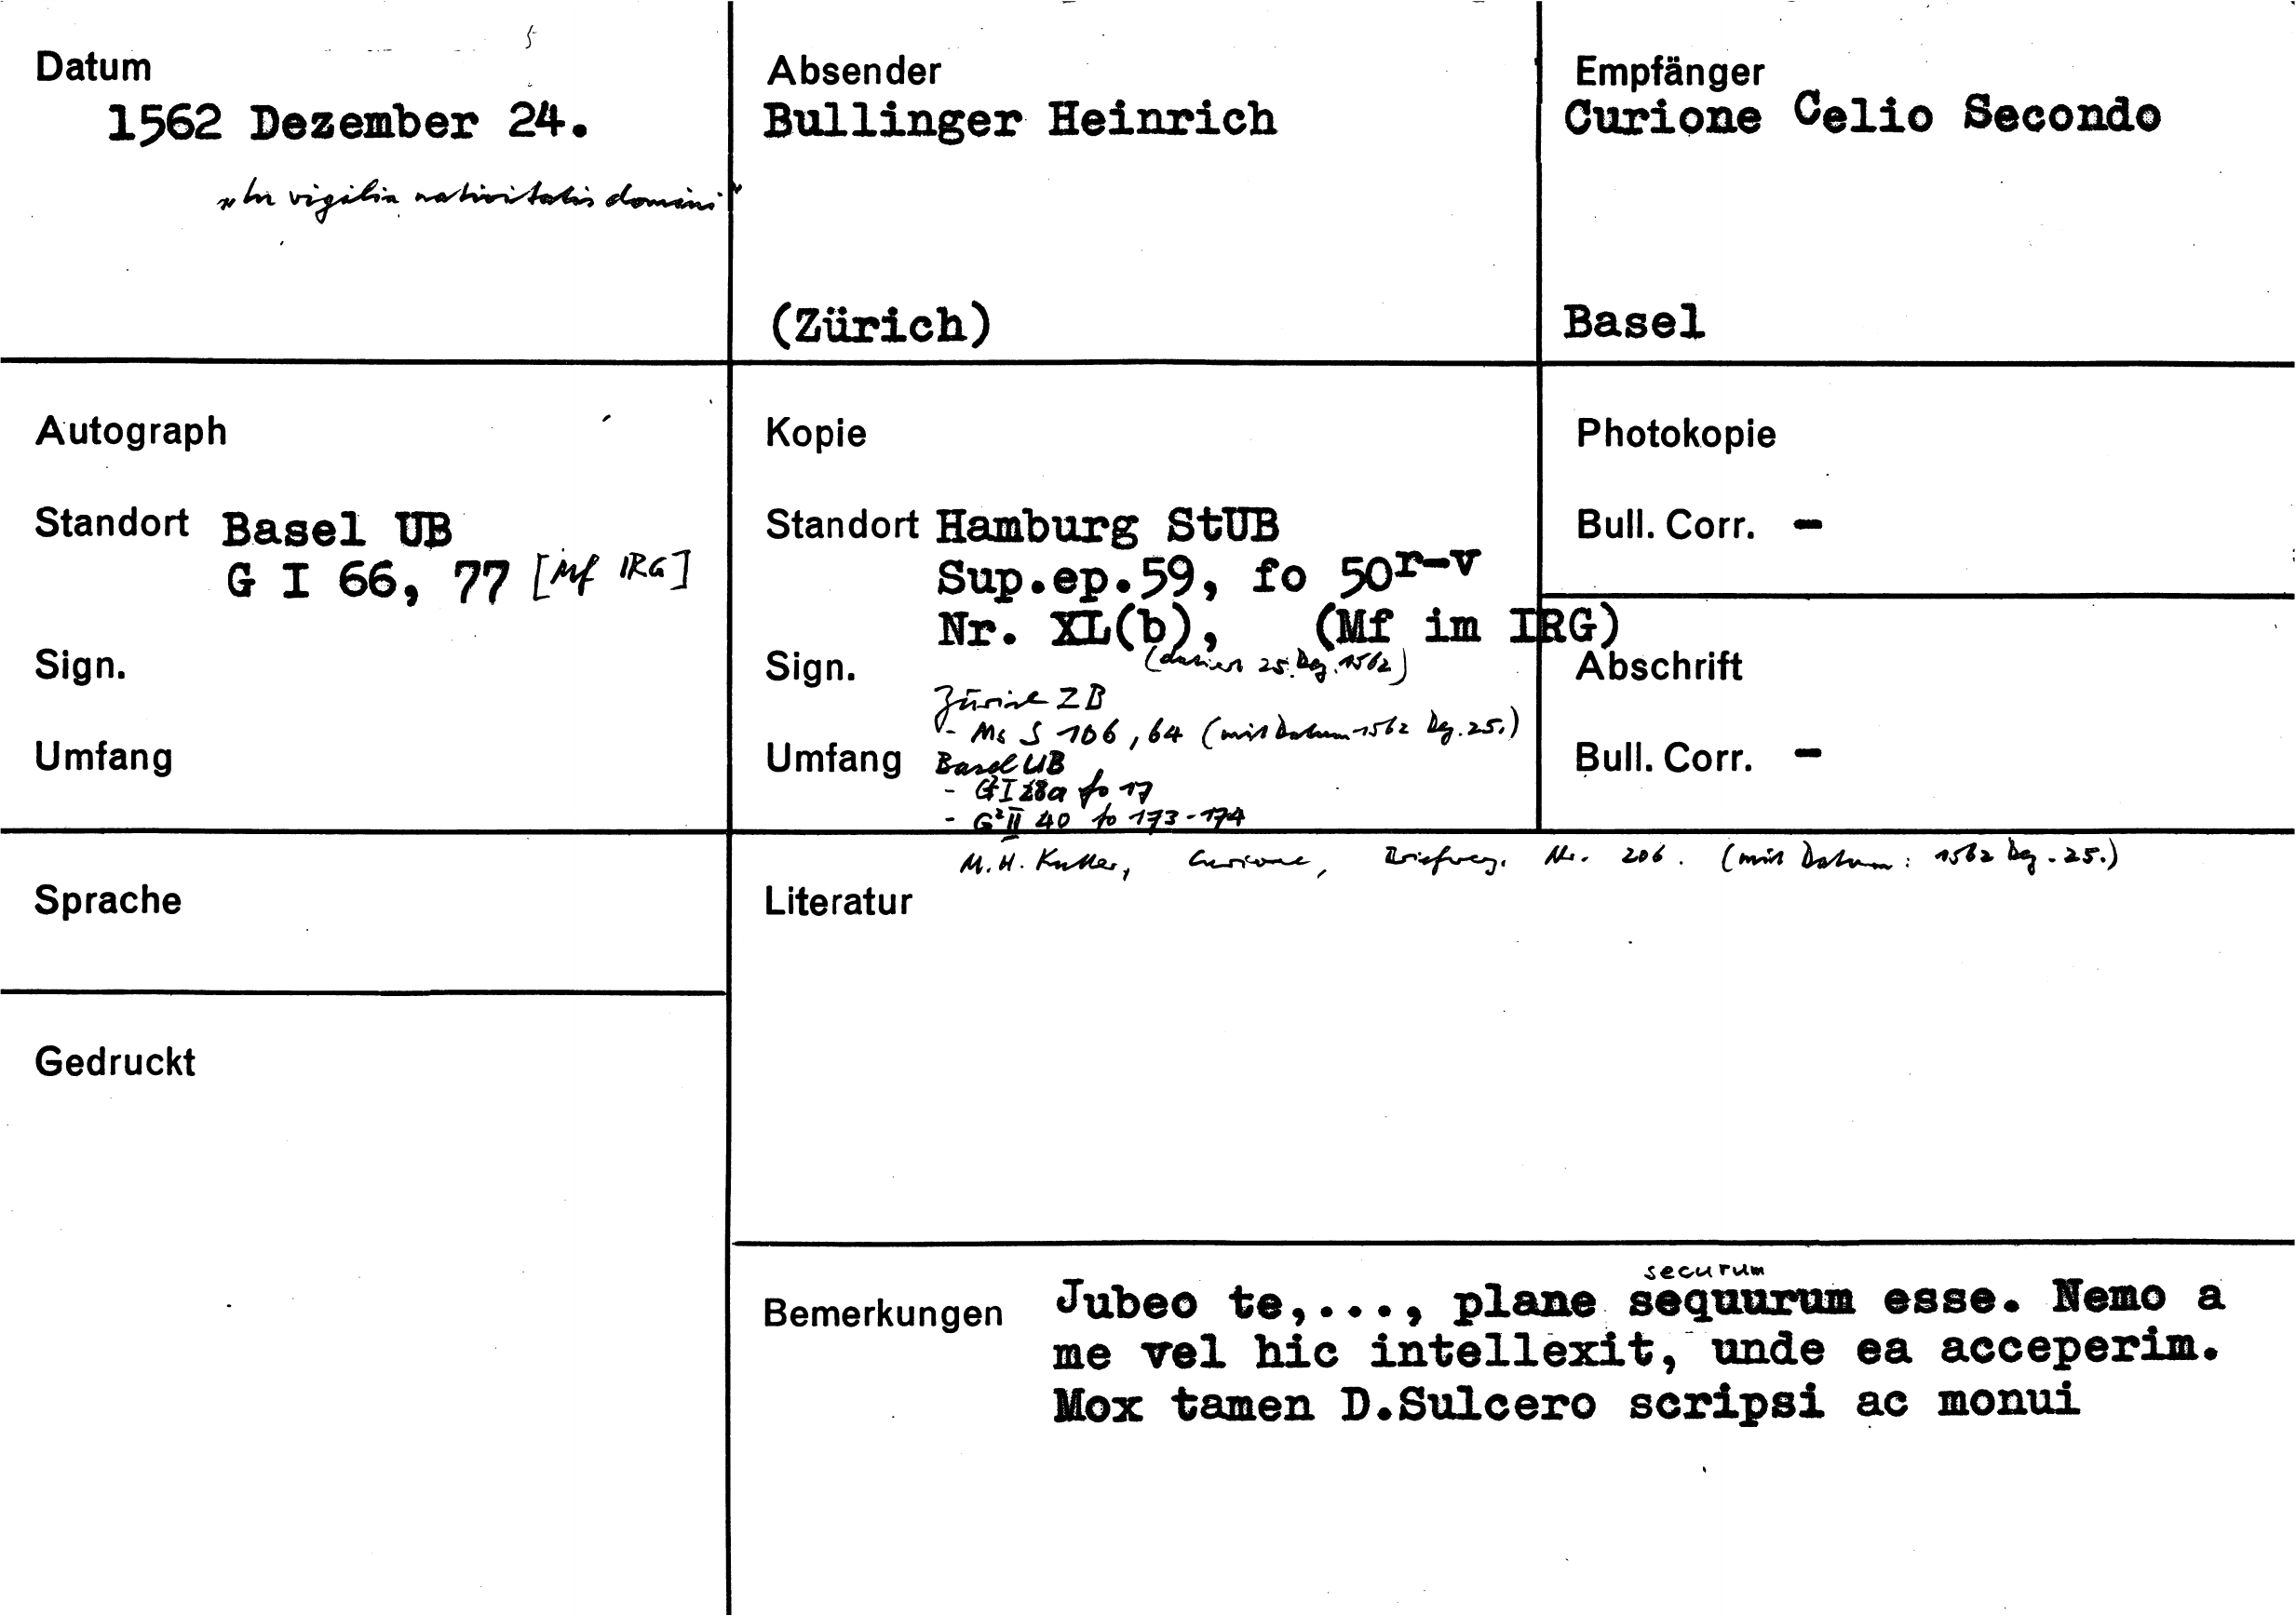 Datum
1562 Dezember 24.
"In vigilia nativitatis domini"
Absender
Bullinger Heinrich
(Zürich)
Empfänger
Curione Celio Secondo
Basel
Autograph
Standort Basel UB
G I 66, 77 [Mf IRG]
Sign.
Umfang
Kopie
Standort Hamburg StUB
Sup.ep.59, fo 50r-v
Nr. XL(b), (Mf im IRG)
(datiert 25. Dez. 1562)
Sign.
Zürich ZB
- Ms S 106, 64 (mit Datum 1562 Dez. 25.)
Umfang Basel UB
- G I fo 17
- G² II 40 fo 173-174
Photokopie
Bull. Corr. -
Abschrift
Bull. Corr. -
Sprache
Gedruckt
M.H. Kutter, Curione, Briefverz. Nr. 206. (mit Datum: 1562 Dez. 25.)
Literatur
securum
Bemerkungen Jubeo te,..., plane sequurum esse. Nemo a
me vel hic intellexit, unde ea acceperim.
Mox tamen D.Sulcero scripsi ac monui